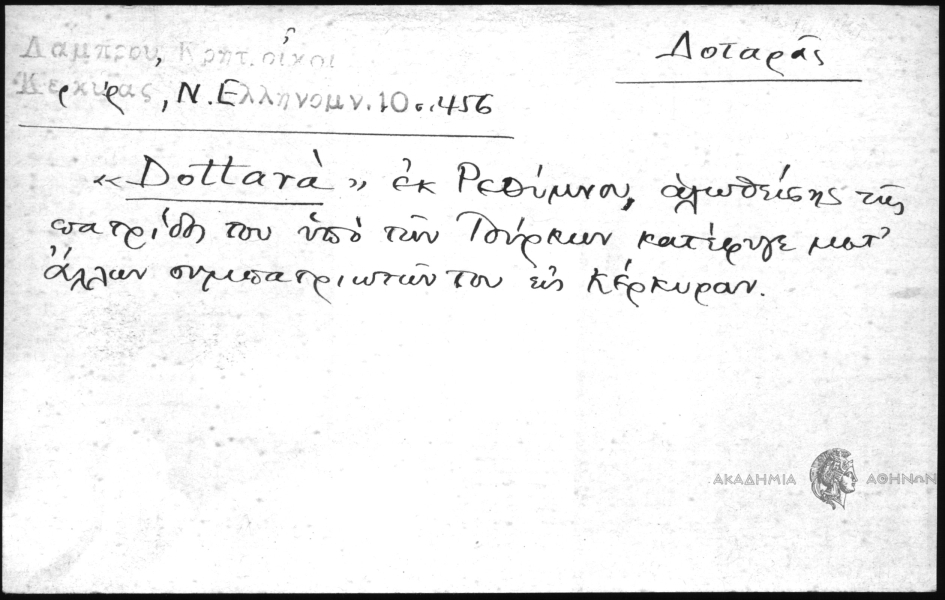 Δοταρᾶς
Λάμπρου, Κρητ. οἶκοι
Κερκύρας, Ν. Ἑλληνομν. 10 σ. 456
«Dottarà» ἐκ Ρεθύμνου, ἁλωθείσης τῆς
πατρίδος του ὑπὸ τῶν Τούρκων κατέφυγε μετ'
ἄλλων συμπατριωτῶν του εἰς Κέρκυραν.
ΑΚΑΔΗΜΙΑ ΑΘΗΝΩΝ